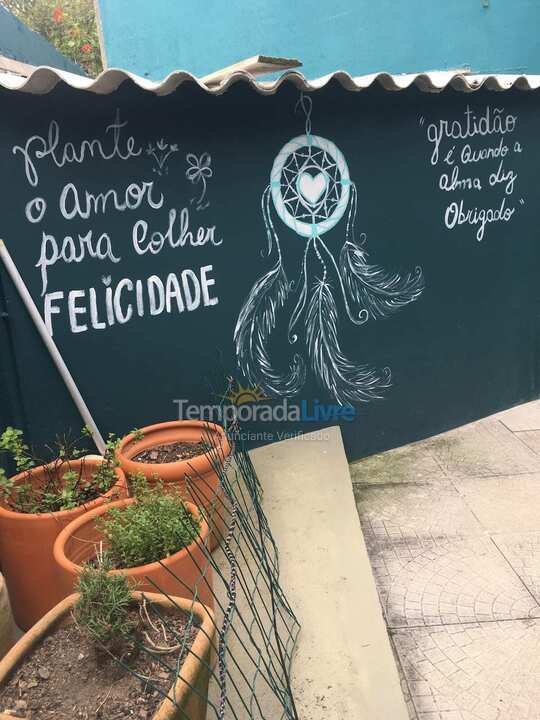 plante
o Amor
para Colher
FELICIDADE
"gratidão
é Quando a
alma diz
Obrigado"
TemporadaLivre
Anunciante Verificado